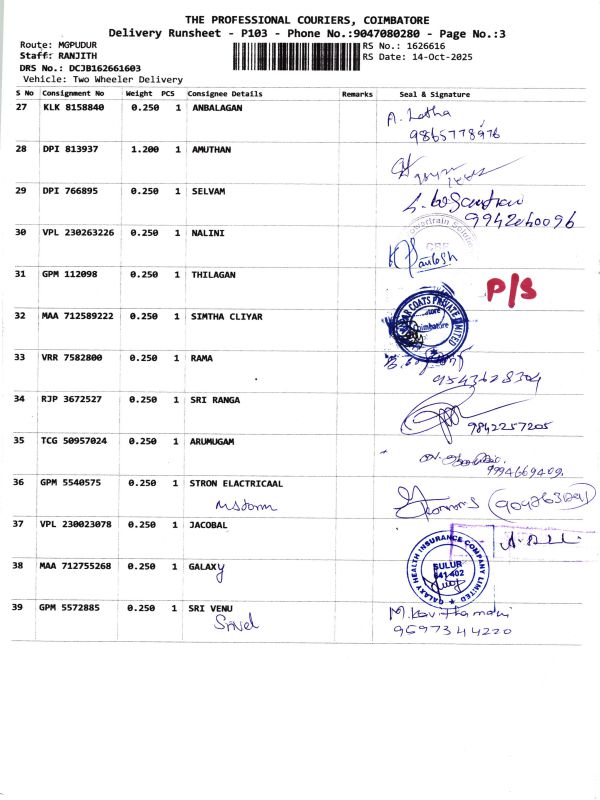 THE PROFESSIONAL COURIERS, COIMBATORE
Delivery Runsheet - P103 - Phone No.:9047080280 - Page No.:3
Route: MGPUDUR
Staff: RANJITH
DRS No.: DCJB162661603
Vehicle: Two Wheeler Delivery
RS No.: 1626616
RS Date: 14-Oct-2025
S No Consignment No Weight PCS Consignee Details Remarks Seal & Signature
27 KLK 8158840 0.250 1 ANBALAGAN
A. Latha
9865778976
28 DPI 813937 1.200 1 AMUTHAN
29 DPI 766895 0.250 1 SELVAM
9942040096
30 VPL 230263226 0.250 1 NALINI
Santosh
31 GPM 112098 0.250 1 THILAGAN
P/S
32 MAA 712589222 0.250 1 SIMTHA CLIYAR
COATS PRIVATE LIMITED
Coimbatore
33 VRR 7582800 0.250 1 RAMA
9543628304
34 RJP 3672527 0.250 1 SRI RANGA
9842257205
35 TCG 50957024 0.250 1 ARUMUGAM
9994669409.
36 GPM 5540575 0.250 1 STRON ELACTRICAAL
37 VPL 230023078 0.250 1 JACOBAL
38 MAA 712755268 0.250 1 GALAXY
GALAXY HEALTH INSURANCE COMPANY LIMITED
SULUR
641 402
39 GPM 5572885 0.250 1 SRI VENU
M. Kavithamani
9597344220